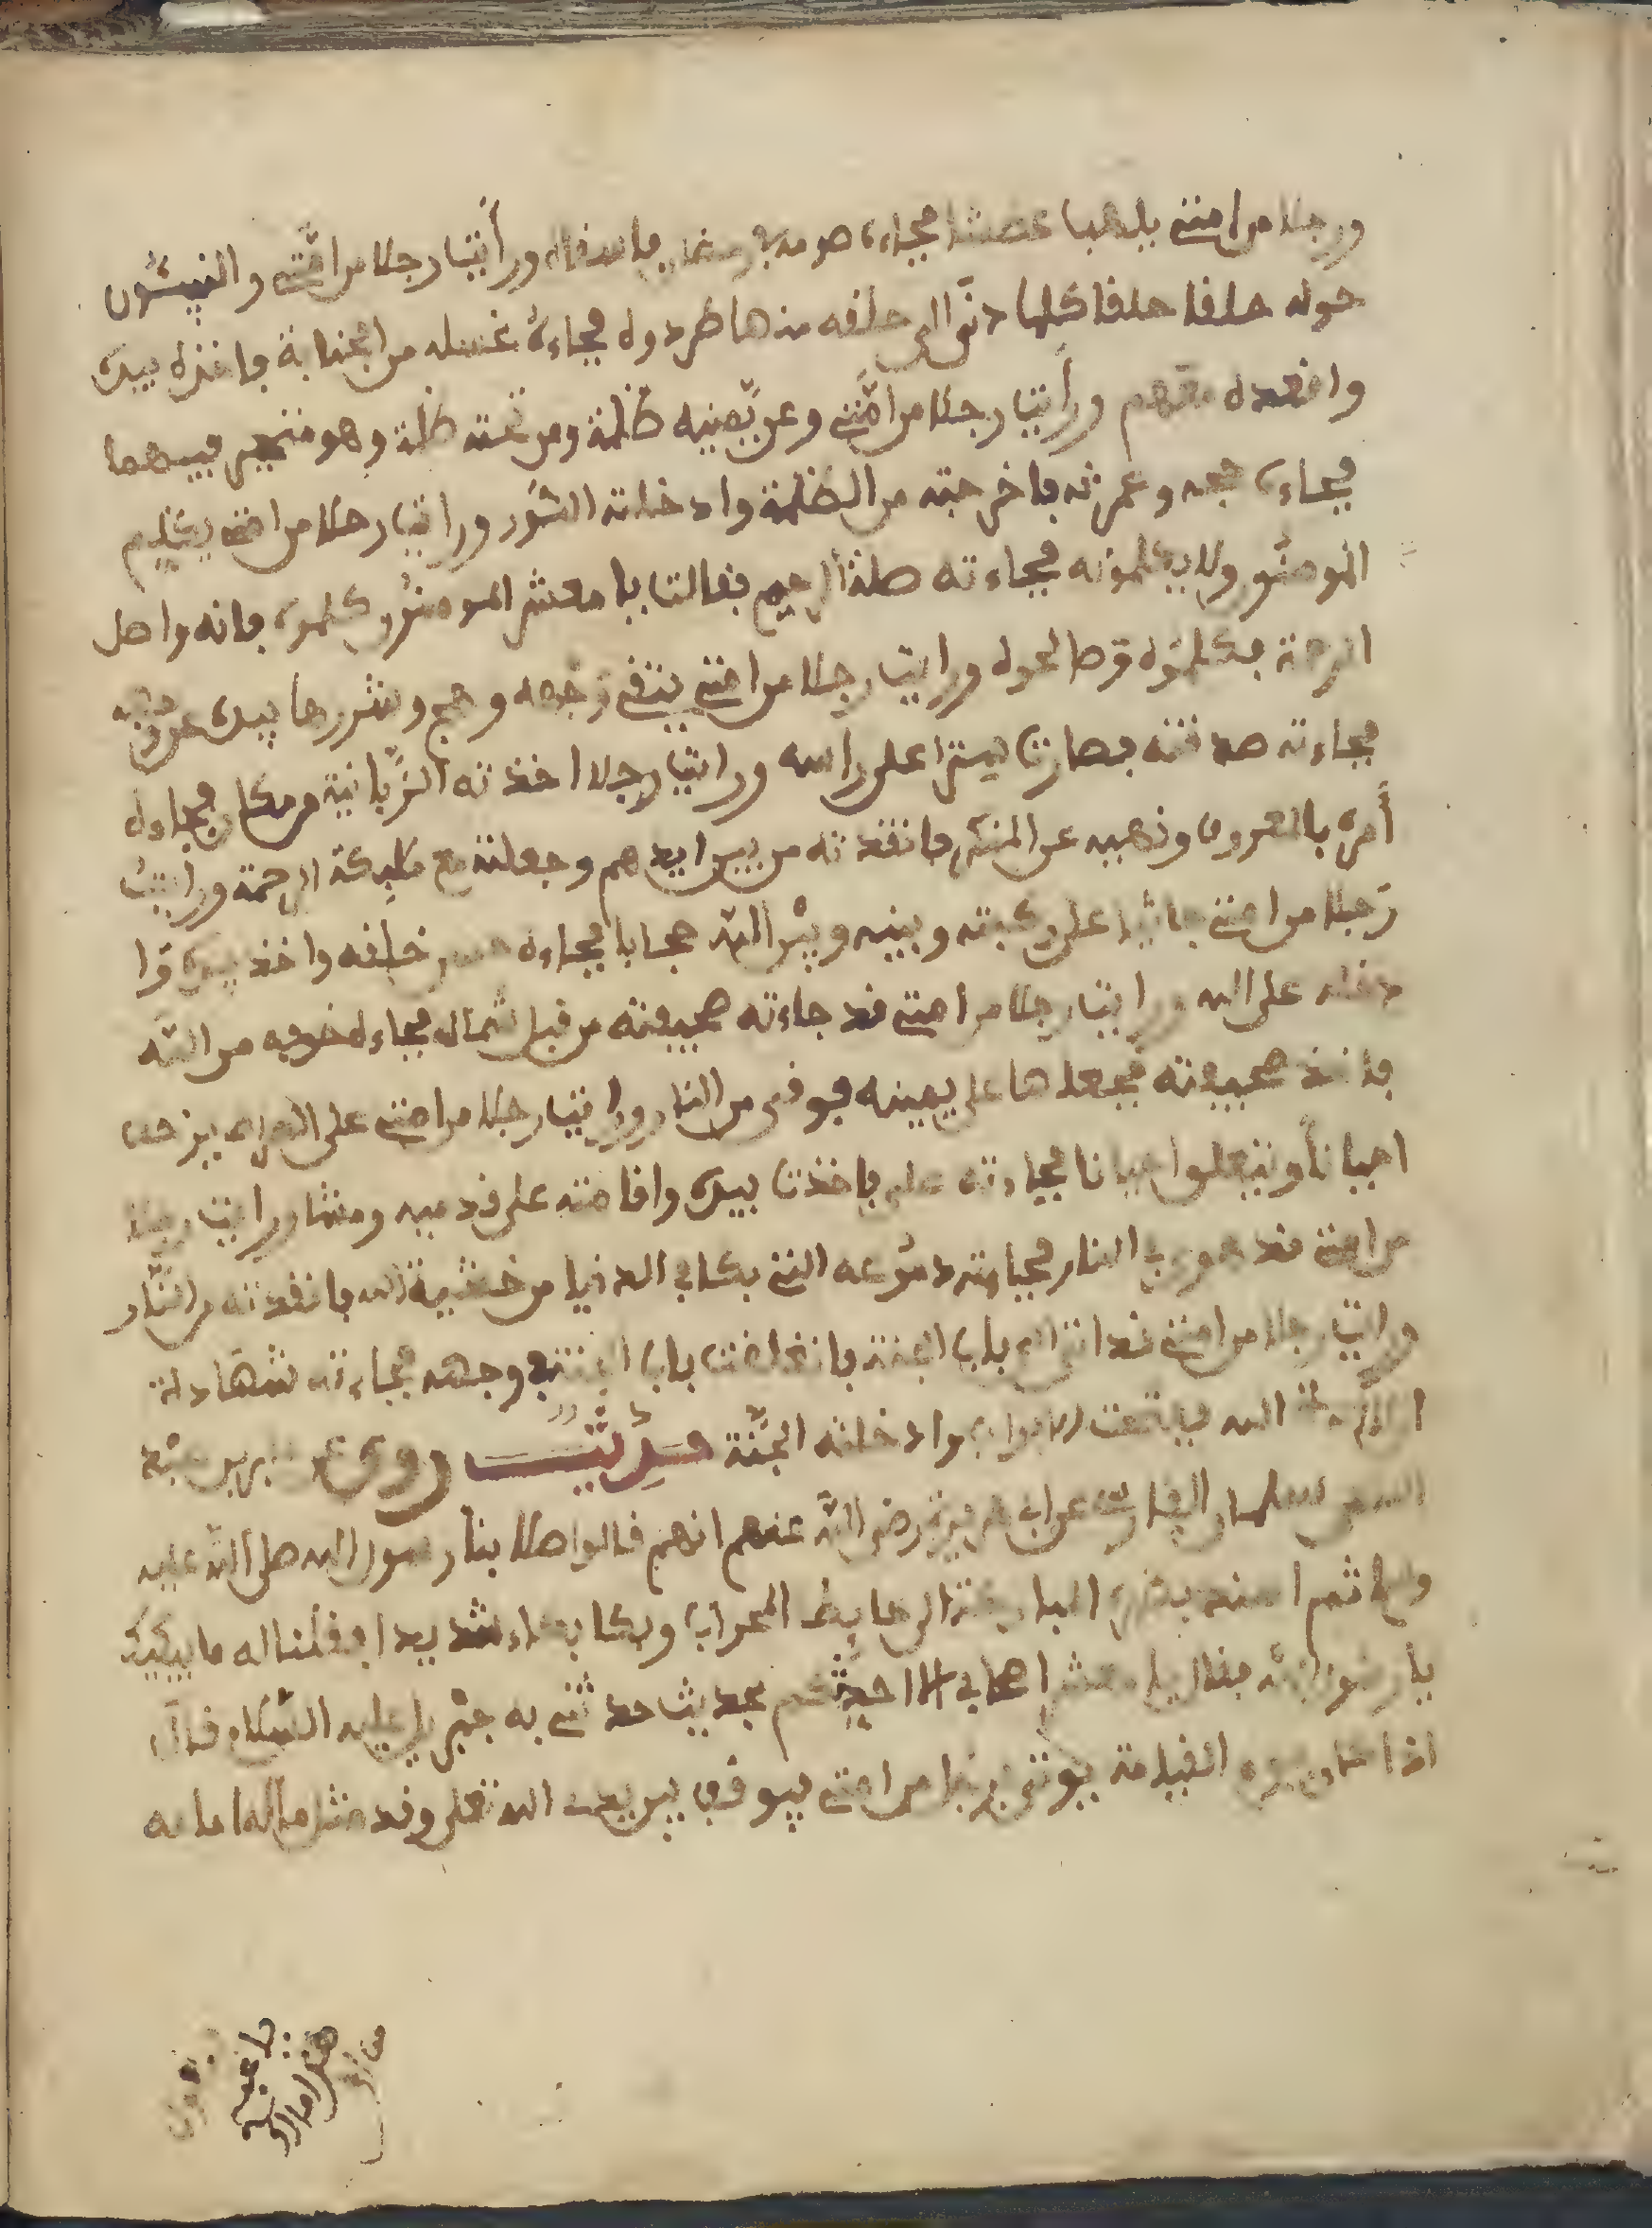 ورجلا من امتي يلهب عطشا فجاءه صومه رمضان فاسقاه ورأيت رجلا من امتي والنبيئون
حوله حلقا حلقا كلما دنى الى حلقة منها طردوه فجاءه غسله من الجنابة فاخذه بيده
واقعده معهم ورأيت رجلا من امتي وعن يمينه ظلمة ومن تحته ظلمة وهو متحير فيهما
فجاءه حجه وعمرته فاخرجته من الظلمة وادخلته النور ورايت رجلا من امتي يكلم
المومنون ولا يكلمونه فجاءته صلة الرحيم فقالت يا معشر المومنون كلموه فانه واصل
الرحمة فكلموه ورايت رجلا من امتي يتقي وجهه وهج وشررها بيده عن وجهه
فجاءته صدقته فصارت سترا على راسه ورايت رجلا اخذته الزبانية من مكان فجاءه
أمره بالمعروف ونهيه عن المنكر فانقذته من بين ايدهم وجعلته مع مليكة الرحمة ورأيت
رجلا من امتي جاثيا على ركبته وبينه وبين الله حجابا فجاءه حسن خلقه واخذ بيده وا
دخله على الله ورايت رجلا من امتي قد جاءته صحيفته من قبل شماله فجاءه خوفه من الله
فاخذ صحيفته فجعلها على يمينه فوقى من النار ورايت رجلا من امتي على الصراط يزحف
احيانا ويتعلوا احيانا فجاءته علي فاخذت بيده واقامته على قدميه ومشا ورايت رجلا
من امتي قد هوى في النار فجاءته دموعه التي بكا في الدنيا من خشية الله فانقذته من النار
ورايت رجلا من امتي قد انتهى الى باب الجنة فانغلقت باب الجنة في وجهه فجاءته شهادة
ان لا اله الا الله ففتحت الابواب وادخلته الجنة حديث روى عن جابر بن عبد
الله عن سلمان الفارسي عن ابي هريرة رضي الله عنهم انهم قالوا صلا بنا رسول الله صلى الله عليه
وسلم ثم اسند بظهره المباركة الى حايط المحراب وبكا بكاء شديدا فقلنا له ما يبكيك
يا رسول الله فقال يا معشر اصحابي الا احدثكم بحديث حدثني به جبريل عليه السلام قال
اذا كان يوم القيامة يوتى برجل من امتي فيوقف بين يدي الله تعلى وقد مثل ماله امامه